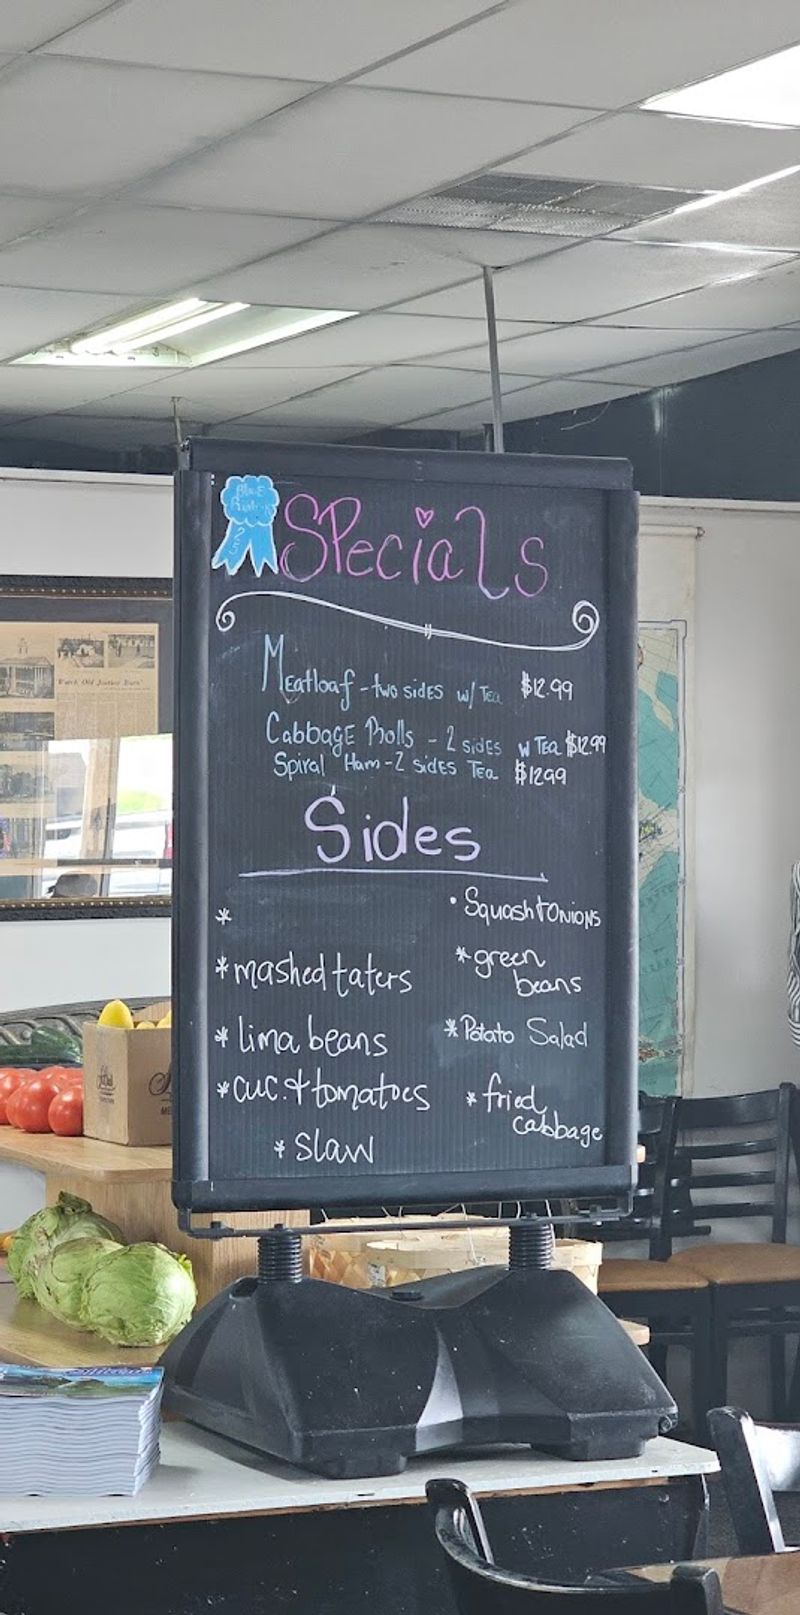 Blue
Ribbon
SPecials
Meatloaf - two sides w/ Tea $12.99
Cabbage Rolls - 2 sides w Tea $12.99
Spiral Ham - 2 sides Tea $12.99
Sides
*
• Squash + Onions
* mashed taters
* green
beans
* lima beans
* Potato Salad
* cuc. + tomatoes
* fried
cabbage
* slaw